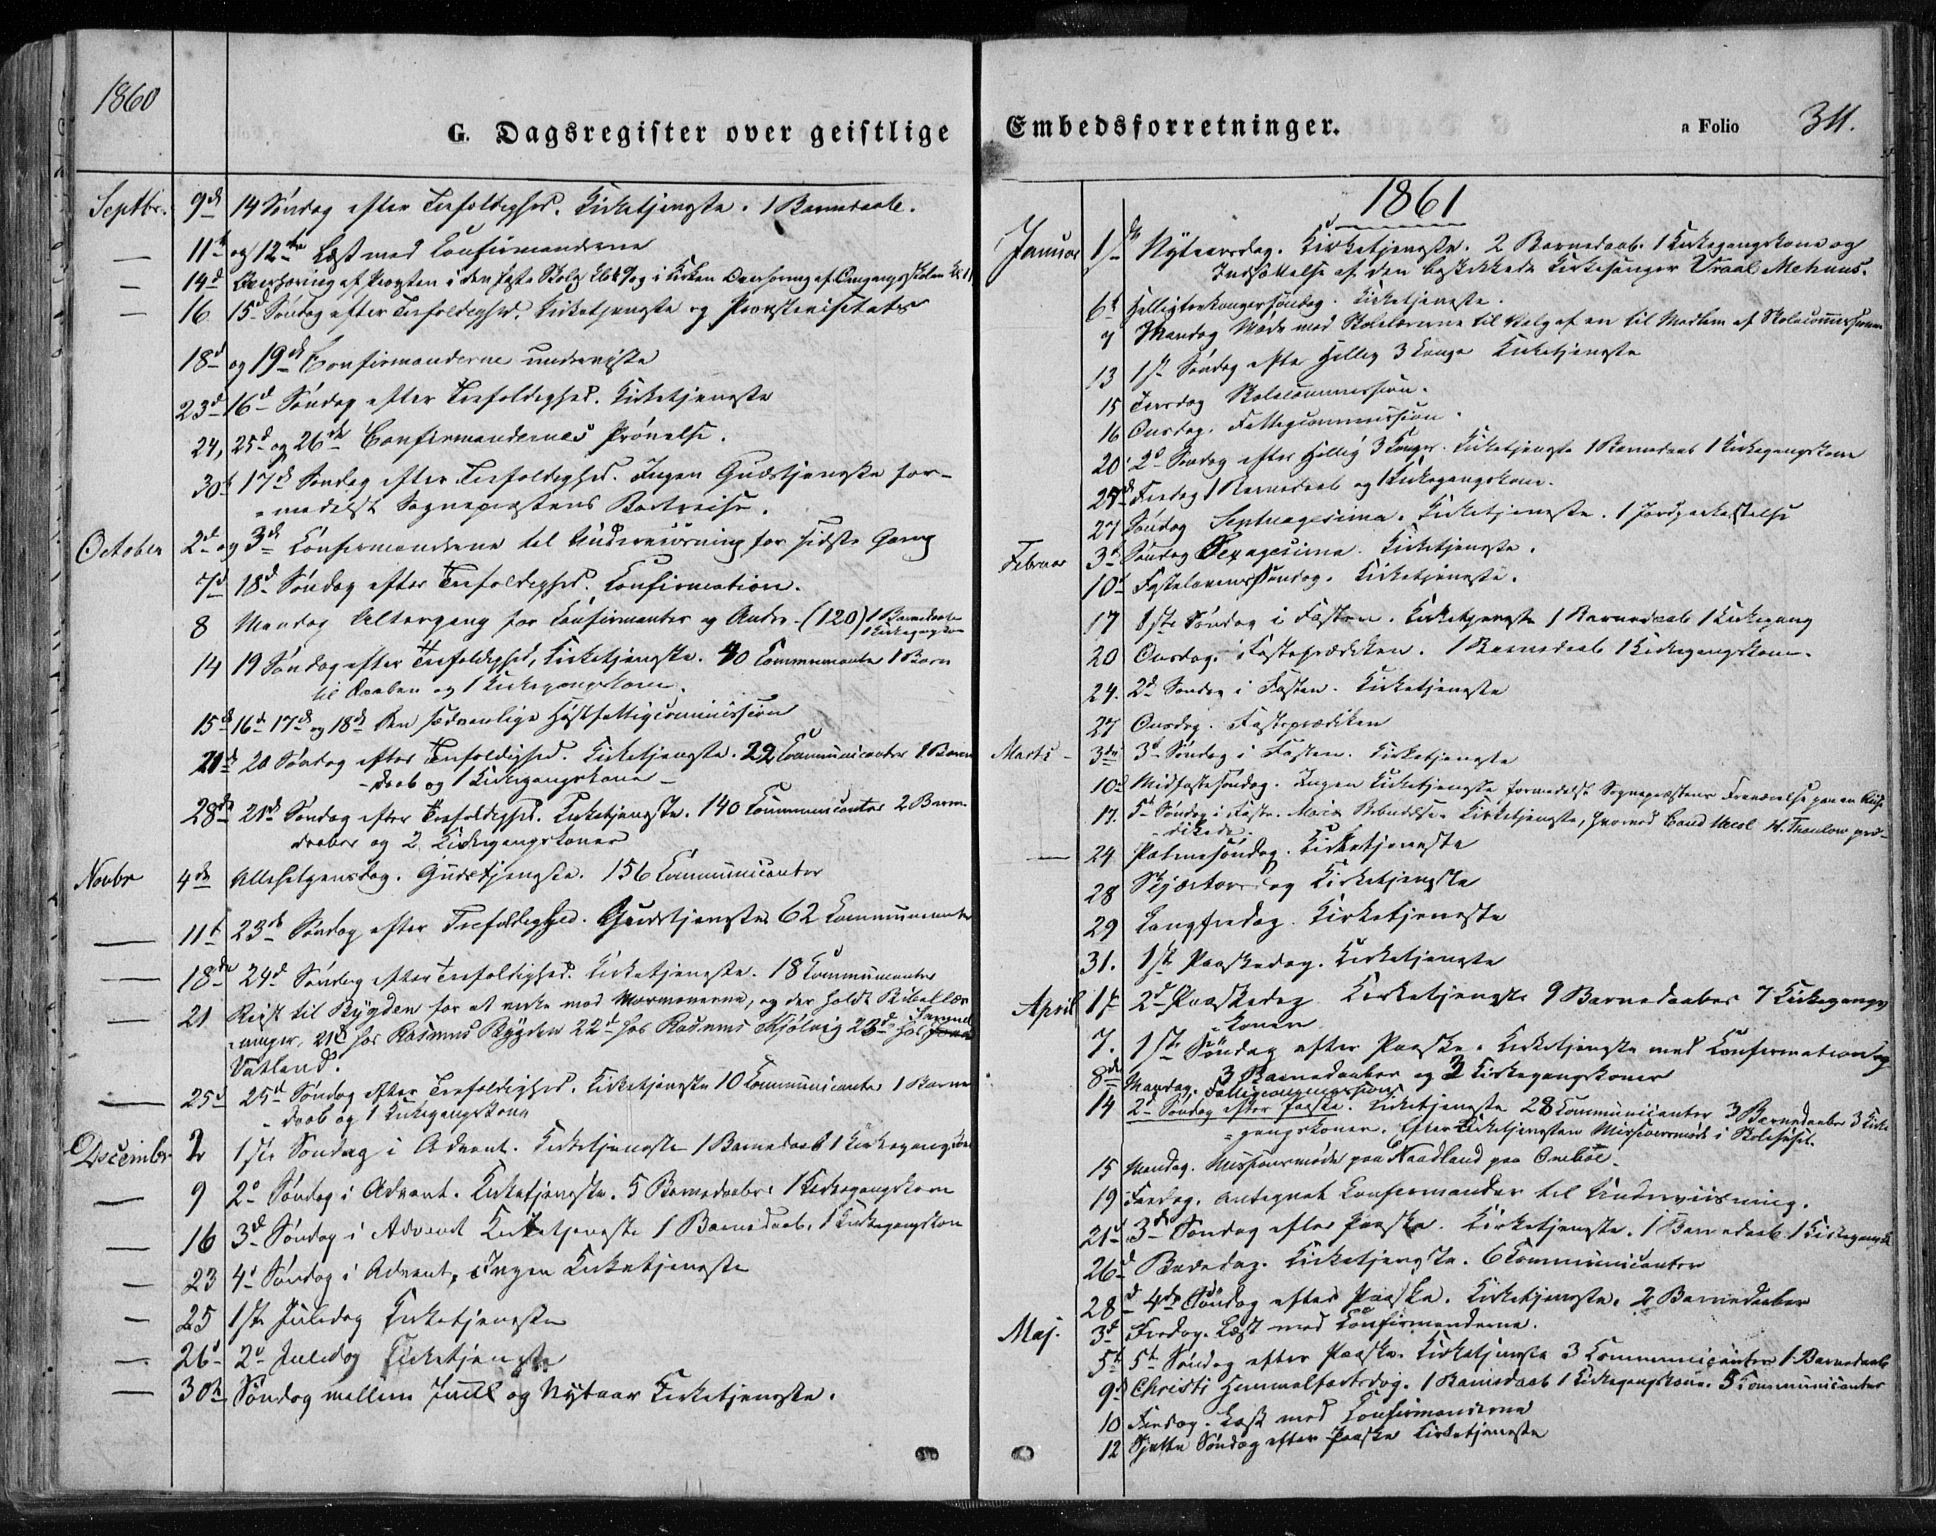 1860
G. Dagsregister over geistlige
Septbr. 9de 14 Søndag efter Trefoldighed. Kirketjeneste. 1 Barnedaab.
— 11te og 12te Læst med Confirmanderne
— 14d Overhøring af Provsten i den faste Skole og i Kirken Overhøring af Omgangsskolen
— 16 15d Søndag efter Trefoldighed. Kirketjeneste og Provstevisitats
18d og 19de Confirmanderne underviste
23d 16d Søndag efter Trefoldighed. Kirketjeneste
24, 25d og 26de Confirmandernes Prøvelse.
30te 17de Søndag efter Trefoldighed. Ingen Gudstjeneste for-
medelst Sognepræstens Bortreise.
October 2d og 3de Confirmanderne til Underviisning for sidste Gang
7d 18d Søndag efter Trefoldighed. Confirmation.
8 Mandag Altergang for Confirmanter og Andre (120) 1 Barnedaab
1 Kirkegangskone
14 19 Søndag efter Trefoldighed, Kirketjeneste. 40 Communicanter 1 Barn
til Daaben og 1 Kirkegangskone.
15de 16de 17de og 18de Den sædvanlige Høstfattigcommission
21de 20 Søndag efter Trefoldighed. Kirketjeneste. 22 Communicanter 1 Barne
daab og 1 Kirkegangskone
28de 21de Søndag efter Trefoldighed. Kirketjeneste. 140 Communicanter 2 Barne
daaber og 2 Kirkegangskoner
Novbr 4de Allehelgensdag. Gudstjeneste. 156 Communicanter
— 11te 23de Søndag efter Trefoldighed. Gudstjeneste 62 Communicanter
— 18de 24d Søndag efter Trefoldighed. Kirketjeneste. 18 Communicanter
— 21 Reist til Bygden for at virke mod Mormonerne, og der holdt Bibellæs
ninger, 21d hos Rasmus Bygden 22d hos Rasmus Kjølvig 23d hos
Vatland.
— 25d 25d Søndag efter Trefoldighed. Kirketjeneste 10 Communicanter 1 Barne
daab og 1 Kirkegangskone
December 2 1ste Søndag i Advent. Kirketjeneste 1 Barnedaab 1 Kirkegangskone
— 9 2d Søndag i Advent. Kirketjeneste. 5 Barnedaaber 1 Kirkegangskone
— 16 3d Søndag i Advent Kirketjeneste 1 Barnedaab, 1 Kirkegangskone
— 23 4d Søndag i Advent, Ingen Kirketjeneste
— 25 1ste Juledag Kirketjeneste
— 26d 2d Juledag Kirketjeneste
— 30te Søndag mellem Juul og Nytaar Kirketjeneste.
Embedsforretninger.
a Folio 311.
1861
Januar 1ste Nytaarsdag. Kirketjeneste. 2 Barnedaab. 1 Kirkegangskone og
Indsættelse af den beskikkede Kirkesanger Vraal Mehuus.
6te Helligtrekongersøndag. Kirketjeneste.
7 Mandag Møde med Skolelærerne til Valg af en til Medlem af Skolecommissionen
13 1ste Søndag efter Hellig 3 Konger Kirketjeneste
15 Tirsdag Skolecommission.
16 Onsdag. Fattigcommission.
20 2d Søndag efter Hellig 3 Konger. Kirketjeneste 1 Barnedaab 1 Kirkegangskone
25de Fredag 1 Barnedaab og 1 Kirkegangskone.
27 Søndag Septuagesima. Kirketjeneste. 1 Jordpaakastelse
Februar 3d Søndag Sexagesima. Kirketjeneste.
10d Fastelavenssøndag. Kirketjeneste.
17 1ste Søndag i Fasten. Kirketjeneste 1 Barnedaab 1 Kirkegang
20 Onsdag. Fasteprædiken. 1 Barnedaab 1 Kirkegangskone.
24. 2d Søndag i Fasten. Kirketjeneste
27 Onsdag. Fasteprædiken
Marts 3die 3d Søndag i Fasten. Kirketjeneste
10d Midfastesøndag. Ingen Kirketjeneste formedelst Sognepræstens Fraværelse paa en Reise
17. 5te Søndag i Faste. Mariæ Bebudelse. Kirketjeneste, hvorved Cand theol H. Thaulow præ-
dikede.
— 24 Palmesøndag. Kirketjeneste
28 Skjærtorsdag Kirketjeneste
29 Langfredag. Kirketjeneste
31. 1ste Paaskedag. Kirketjeneste
April 1ste 2d Paaskedag Kirketjeneste 9 Barnedaaber 7 Kirkegangs
koner
7. 1ste Søndag efter Paaske. Kirketjeneste med Confirmation og
3 Barnedaaber og 2 Kirkegangskoner
8de Mandag. Fattigcommission
14 2d Søndag efter Paaske. Kirketjeneste 28 Communicanter 3 Barnedaaber 3 Kirke
gangskoner. Efter Kirketjenesten Missionsmøde i Skolehuset.
15 Mandag. Missionsmøde paa Naadland paa Ombøe.
19 Fredag. Antegnet Confirmander til Underviisning.
21d 3de Søndag efter Paaske. Kirketjeneste. 1 Barnedaab 1 Kirkegangsk.
26d Bededag. Kirketjeneste. 6 Communicanter
28d 4de Søndag efter Paaske. Kirketjeneste. 2 Barnedaaber
Maj. 3d Fredag. Læst med Confirmanderne.
5te 5te Søndag efter Paaske. Kirketjeneste 3 Communicanter 1 Barnedaab
9d Christi Himmelfartsdag. 1 Barnedaab 1 Kirkegangskone. 5 Communicanter
10 Fredag. Læst med Confirmanderne
12 Sjette Søndag efter Paaske Kirketjeneste